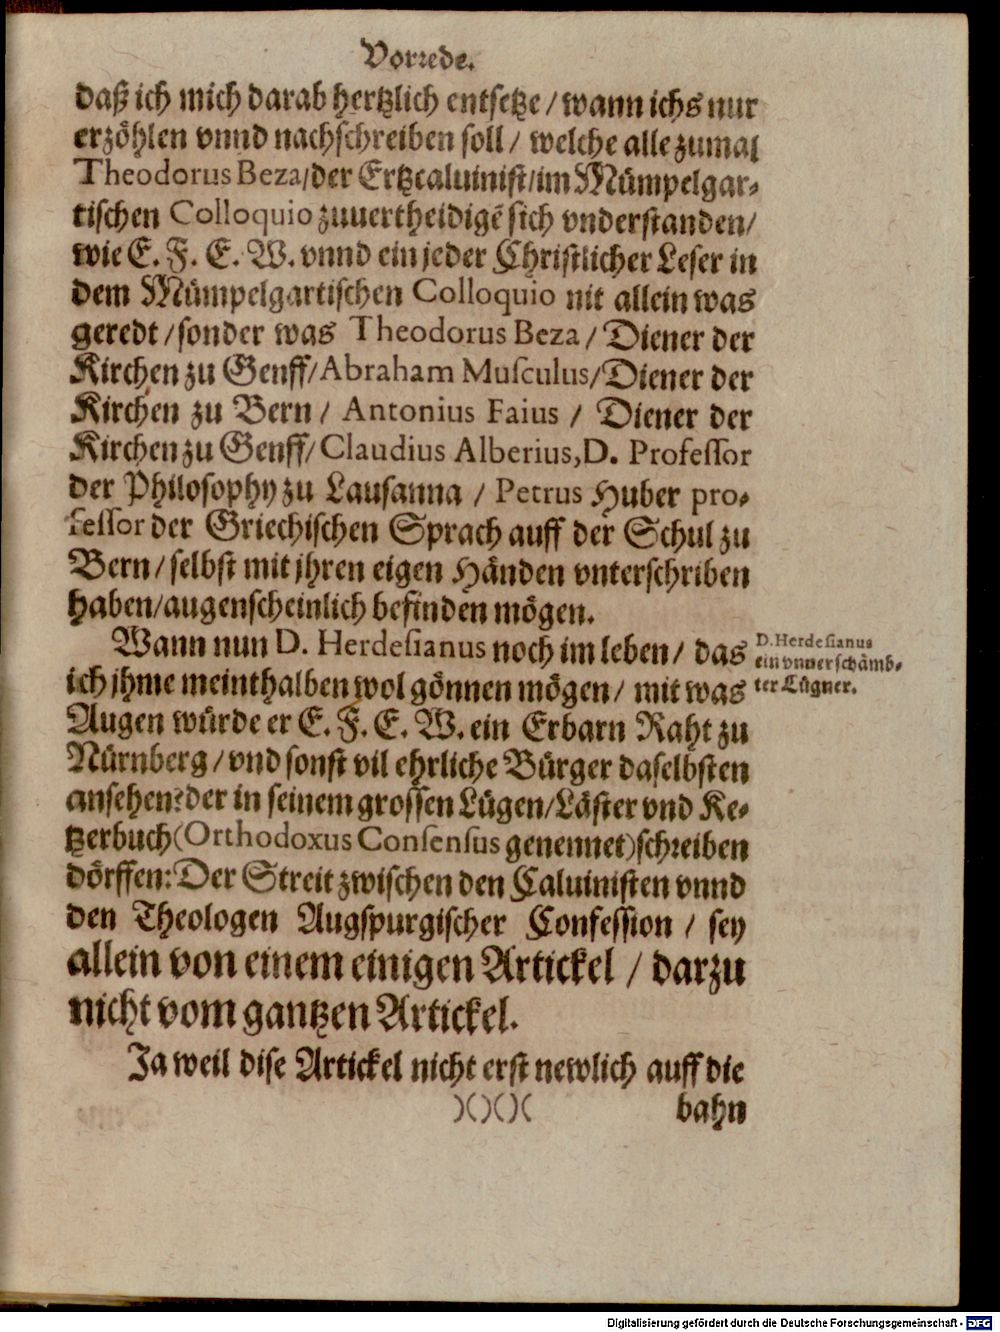 Vorrede.
daß ich mich darab hertzlich entsetze / wann ichs nur
erzöhlen vnnd nachschreiben soll / welche alle zumal
Theodorus Beza/der Ertzcaluinist/im Mümpelgar-
tischen Colloquio zuuertheidigẽ sich vnderstanden/
wie E. F. E. W. vnnd ein jeder Christlicher Leser in
dem Mümpelgartischen Colloquio nit allein was
geredt /sonder was Theodorus Beza / Diener der
Kirchen zu Genff/Abraham Musculus/Diener der
Kirchen zu Bern / Antonius Faius / Diener der
Kirchen zu Genff/Claudius Alberius,D. Professor
der Philosophy zu Lausanna / Petrus Huber pro-
fessor der Griechischen Sprach auff der Schul zu
Bern /selbst mit jhren eigen Händen vnterschriben
haben/augenscheinlich befinden mögen.
Wann nun D. Herdesianus noch im leben / das
ich jhme meinthalben wol gönnen mögen / mit was
Augen würde er E. F. E. W. ein Erbarn Raht zu
Nürnberg /vnd sonst vil ehrliche Bürger daselbsten
ansehen?der in seinem grossen Lügen/Läster vnd Ke-
tzerbuch(Orthodoxus Consensus genennet)schreiben
dörffen:Der Streit zwischen den Caluinisten vnnd
den Theologen Augspurgischer Confession / sey
allein von einem einigen Artickel / darzu
nicht vom gantzen Artickel.
Ja weil dise Artickel nicht erst newlich auff die
)()()( bahn
D. Herdesianus
ein vnuerschämb-
ter Lügner.
Digitalisierung gefördert durch die Deutsche Forschungsgemeinschaft - DFG